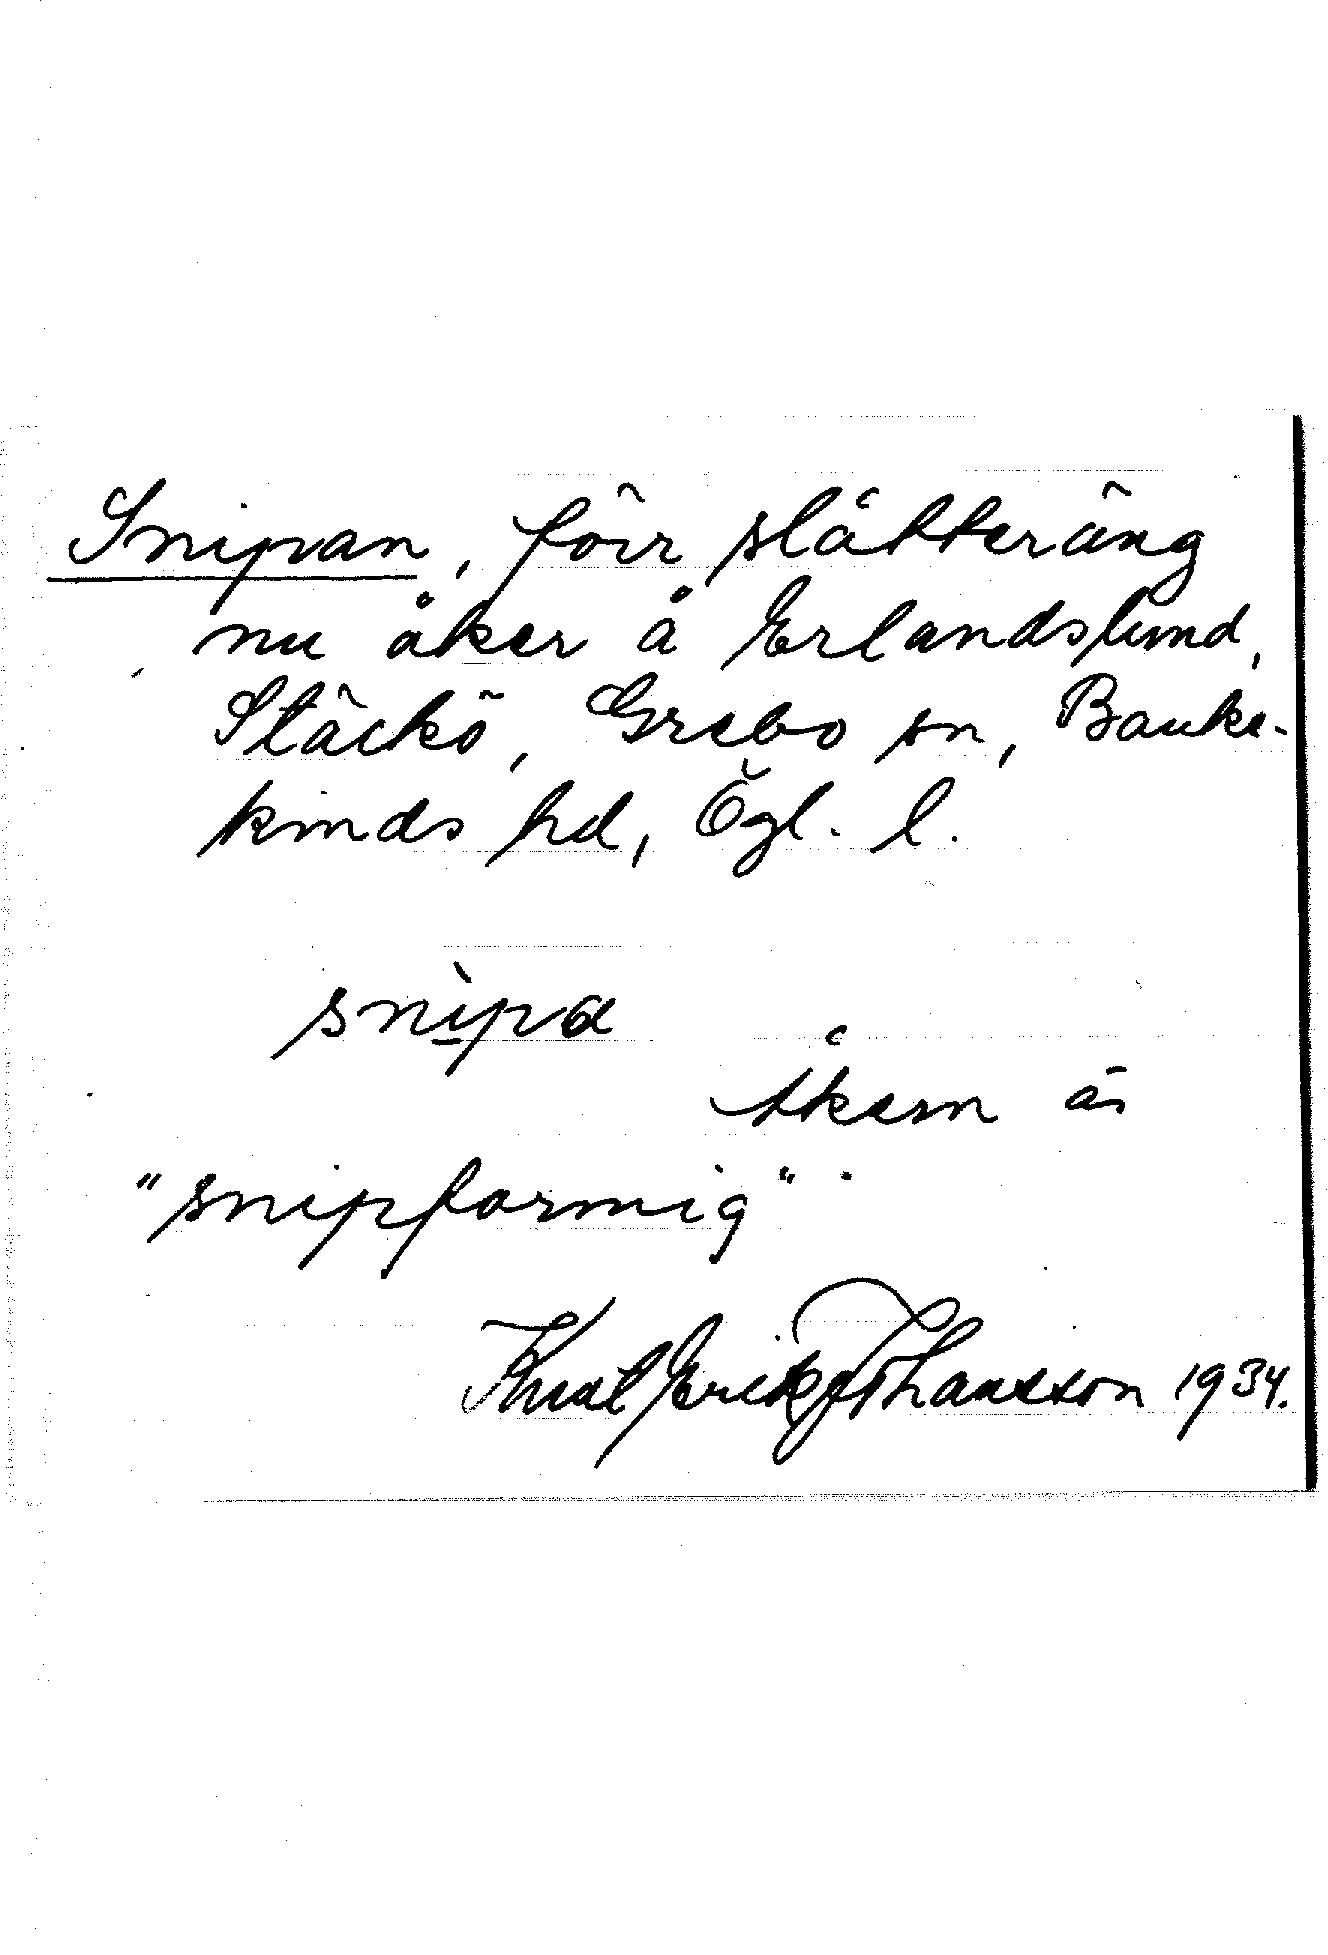 Snipan, förr slåtteräng
nu åker å Erlandslund,
Stäckö, Grebo sn, Banke-
kinds hd, Ögl. l.
snìpa
Åkern är
"snipformig".
Knut Erik Johansson 1934.